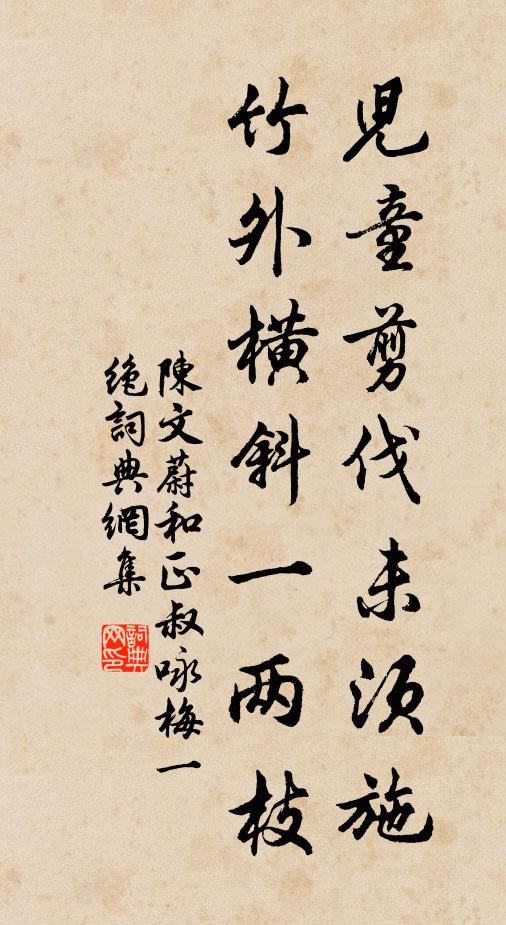 児童剪伐未須施
竹外橫斜一两枝
陳文蔚和正叔咏梅一
絶詞典網集
詞典
网印